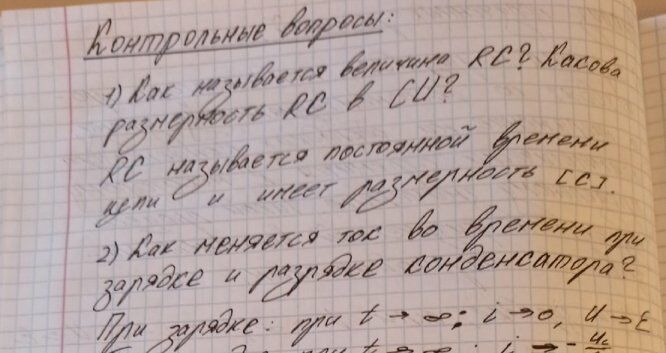 Контрольные вопросы:
1) Как называется величина RC? Какова
размерность RC в СИ?
RC называется постоянной времени
цепи и имеет размерность [с].
2) Как меняется ток во времени при
зарядке и разрядке конденсатора?
При зарядке: при t → ∞; i → 0, U → ε